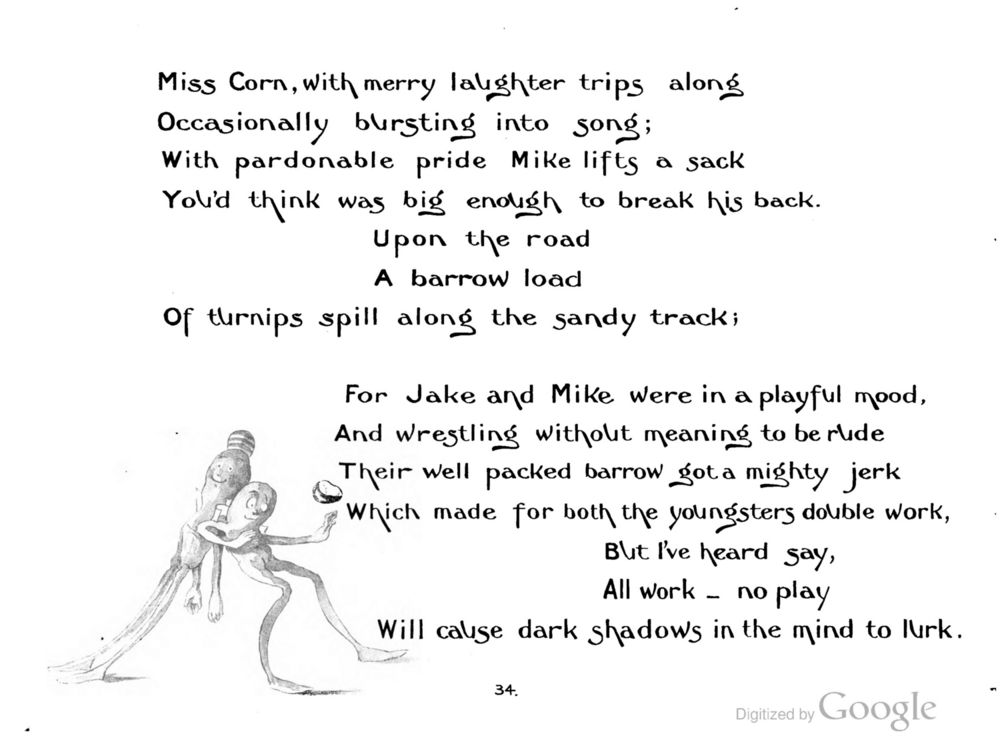 Miss Corn, with merry laughter trips along
Occasionally bursting into song;
With pardonable pride Mike lifts a sack
You'd think was big enough to break his back.
Upon the road
A barrow load
Of turnips spill along the sandy track;
For Jake and Mike were in a playful mood,
And wrestling without meaning to be rude
Their well packed barrow got a mighty jerk
Which made for both the youngsters double work,
But I've heard say,
All work – no play
Will cause dark shadows in the mind to lurk.
34.
Digitized by Google